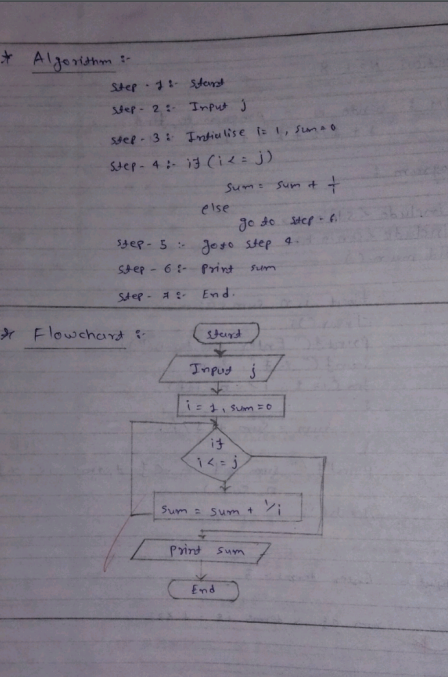 * Algorithm :-
Step - 1 :- Start
Step - 2 :- Input j
Step - 3 :- Intialise i= 1, sum=0
Step - 4 :- if (i <= j)
sum = sum + 1/i
else
go to step - 6
Step - 5 :- goto step 4
Step - 6 :- Print sum
Step - 7 :- End.
* Flowchart :-
Start
Input j
i = 1, sum=0
if
i <= j
sum = sum + 1/i
Print sum
End